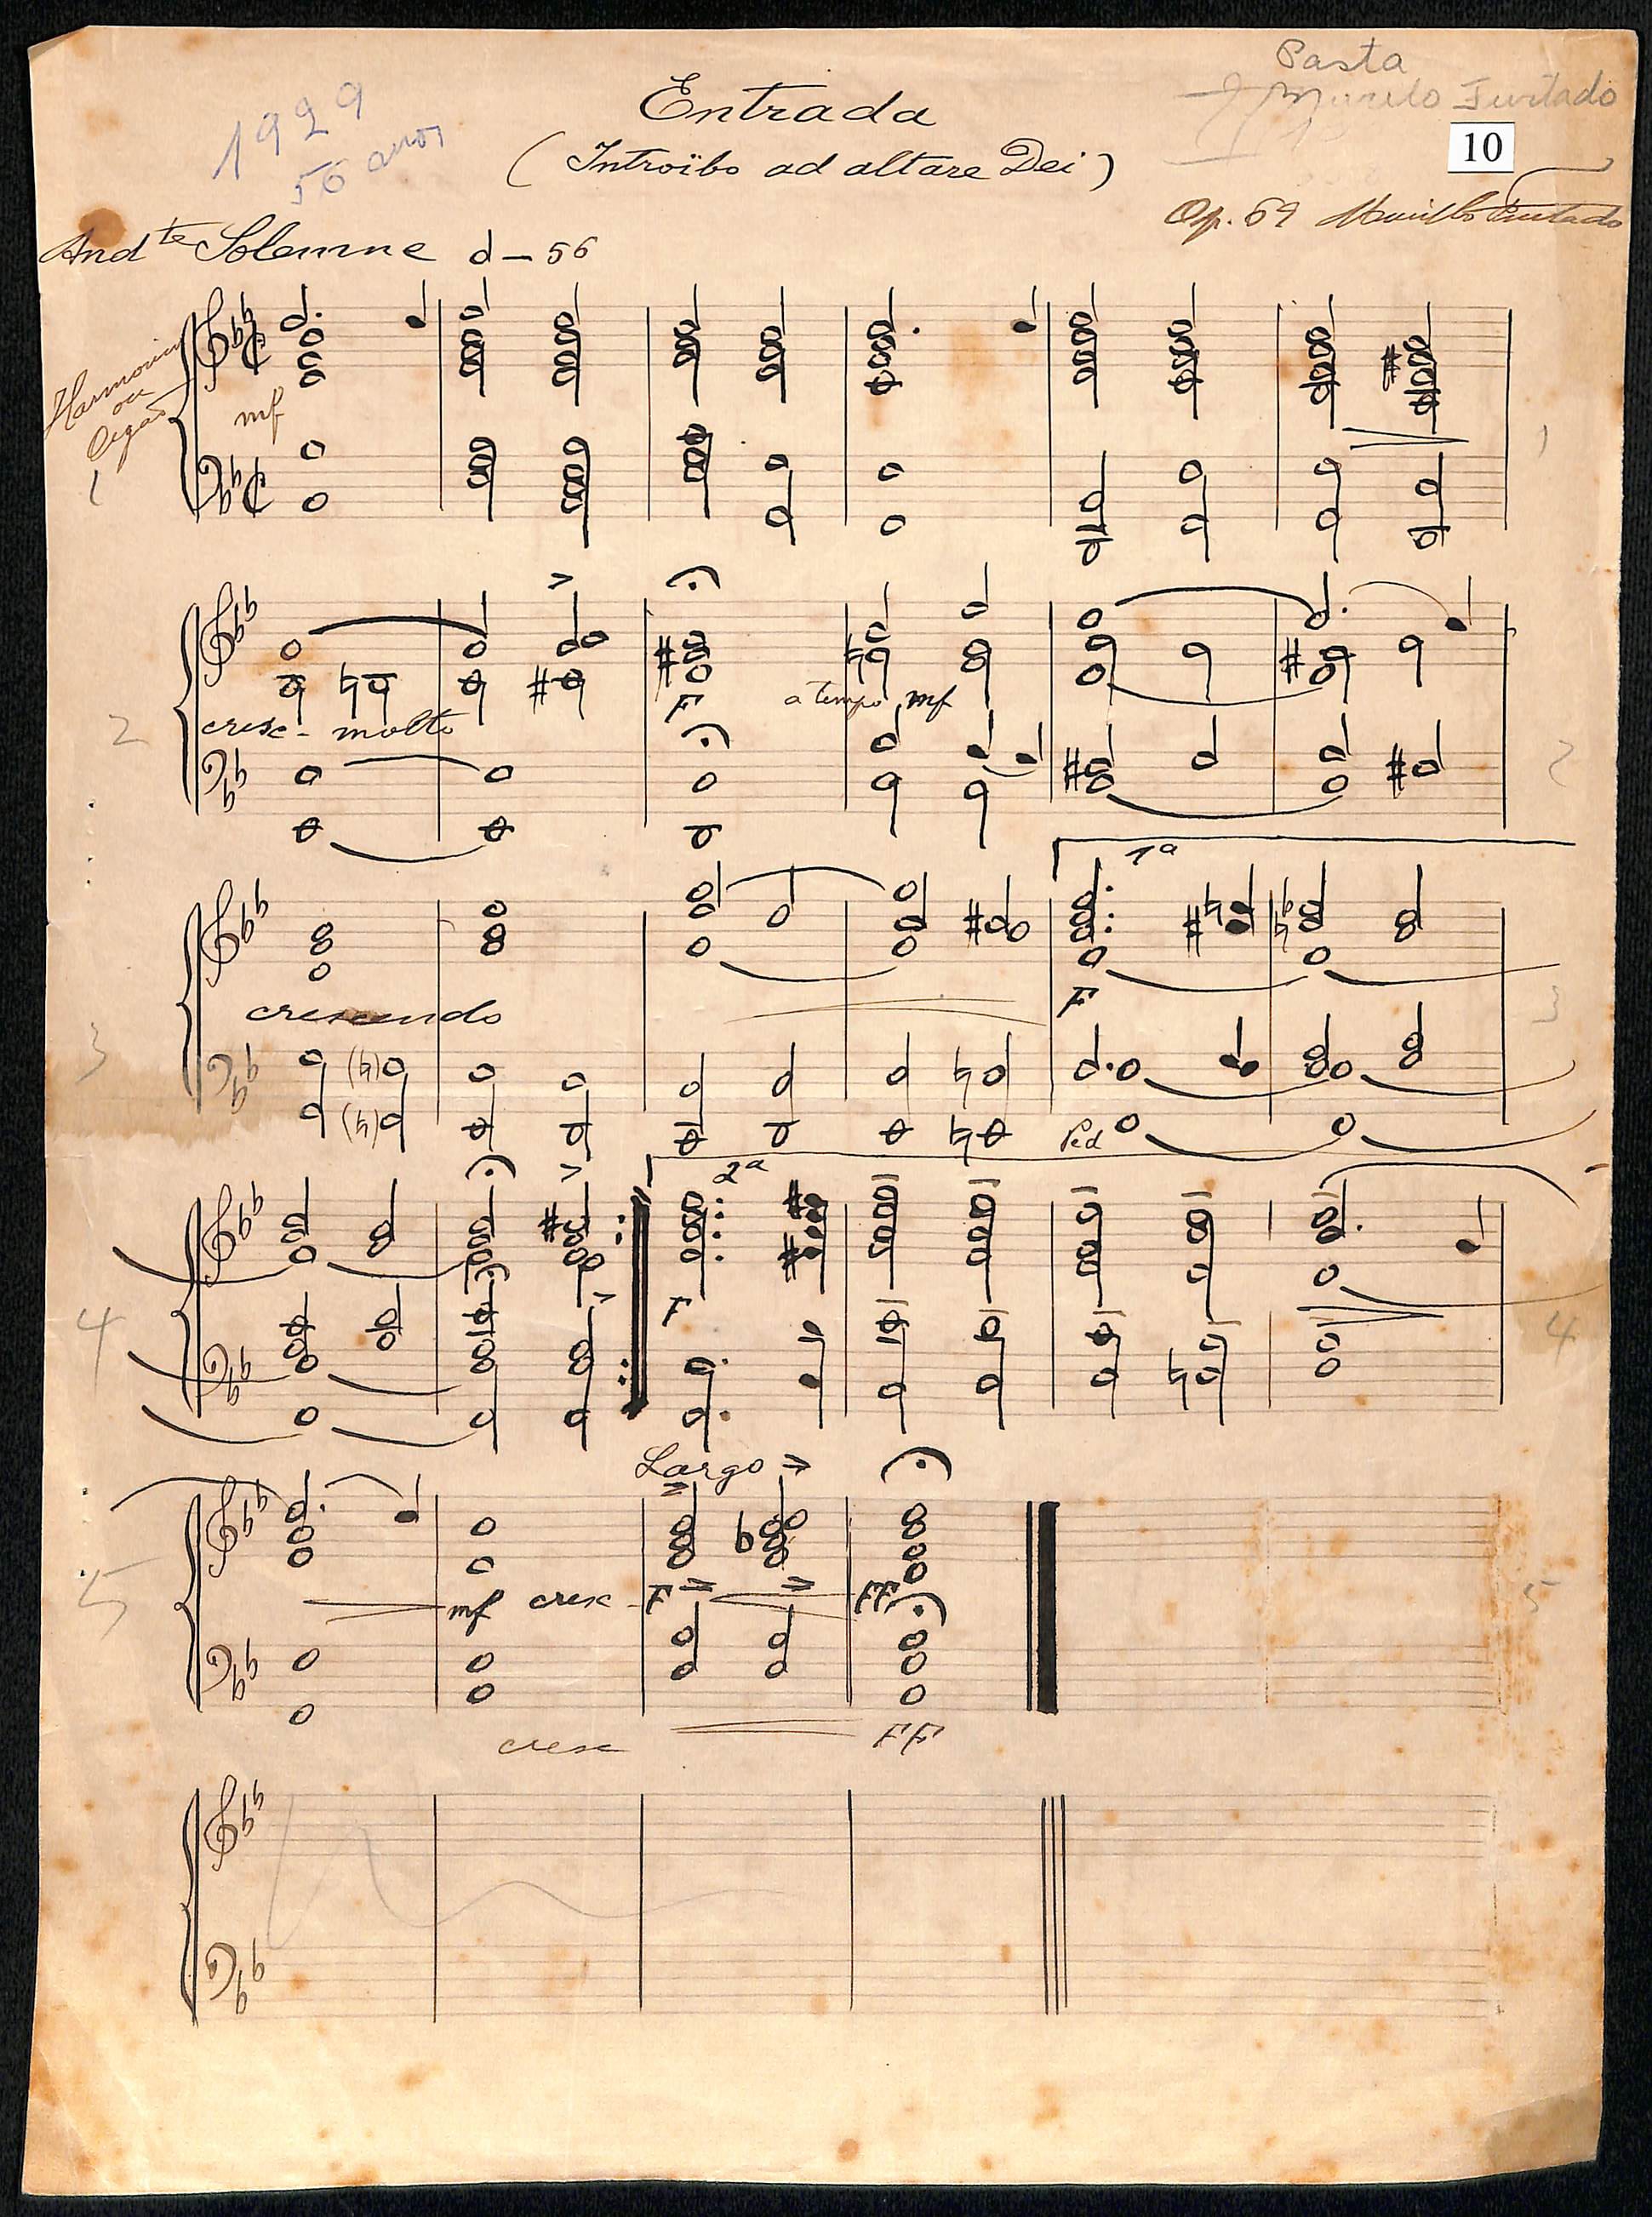 Pasta
Murilo Furtado
10
1929
56 anos
Entrada
(Introïbo ad altare Dei)
Op. 69 Murillo Furtado
Andte Solemne 𝅗𝅥 – 56
Harmonium
ou
Orgão
mf
1
1
cresc - molto
F
a tempo mf
2
2
1a
crescendo
F
Ped
3
3
2a
F
4
4
Largo
mf cresc - F FF
cresc FF
5
5